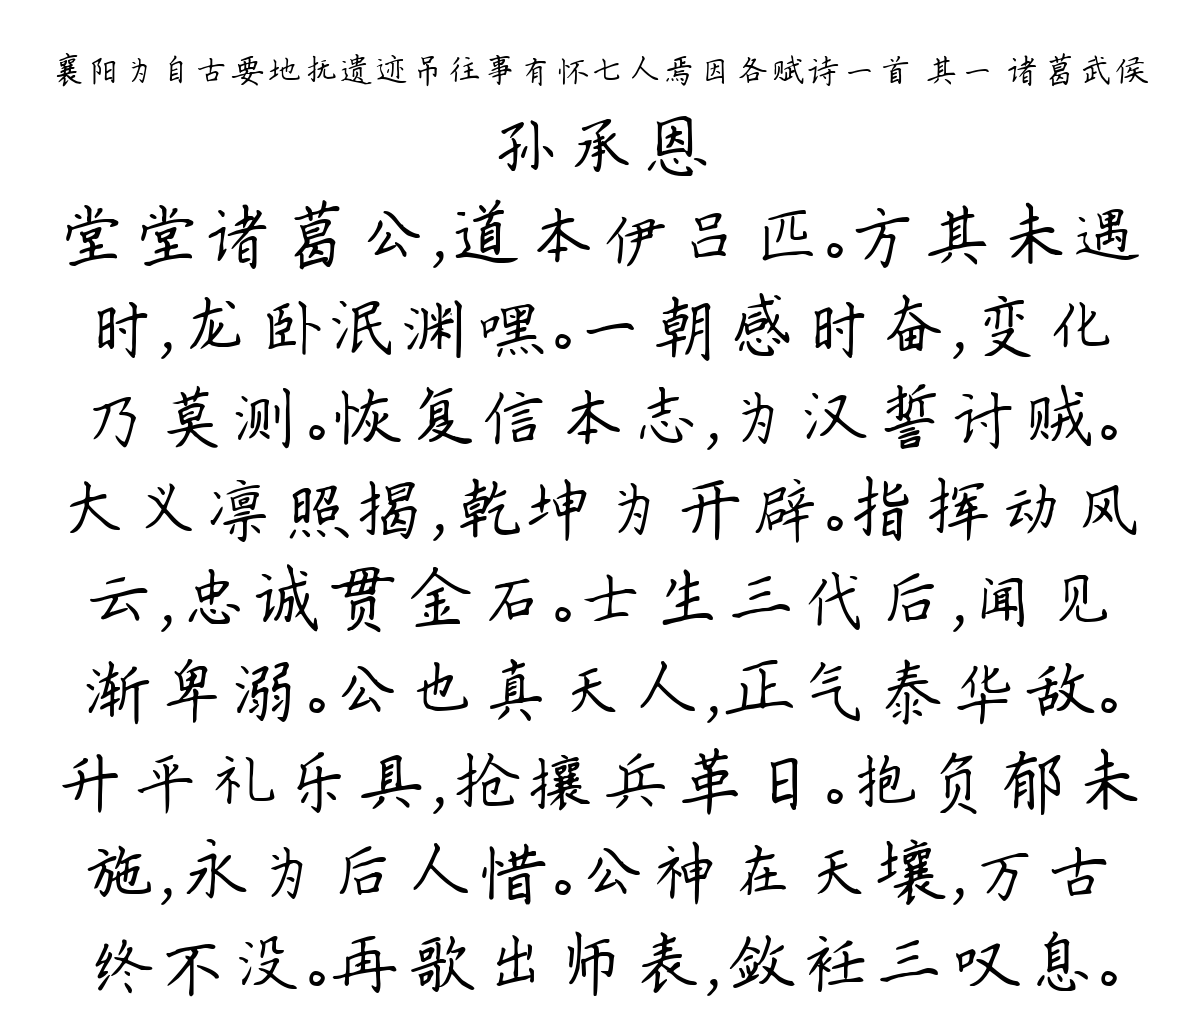 襄阳为自古要地抚遗迹吊往事有怀七人焉因各赋诗一首 其一 诸葛武侯
孙承恩
堂堂诸葛公,道本伊吕匹。方其未遇
时,龙卧泯渊嘿。一朝感时奋,变化
乃莫测。恢复信本志,为汉誓讨贼。
大义凛照揭,乾坤为开辟。指挥动风
云,忠诚贯金石。士生三代后,闻见
渐卑溺。公也真天人,正气泰华敌。
升平礼乐具,抢攘兵革日。抱负郁未
施,永为后人惜。公神在天壤,万古
终不没。再歌出师表,敛衽三叹息。